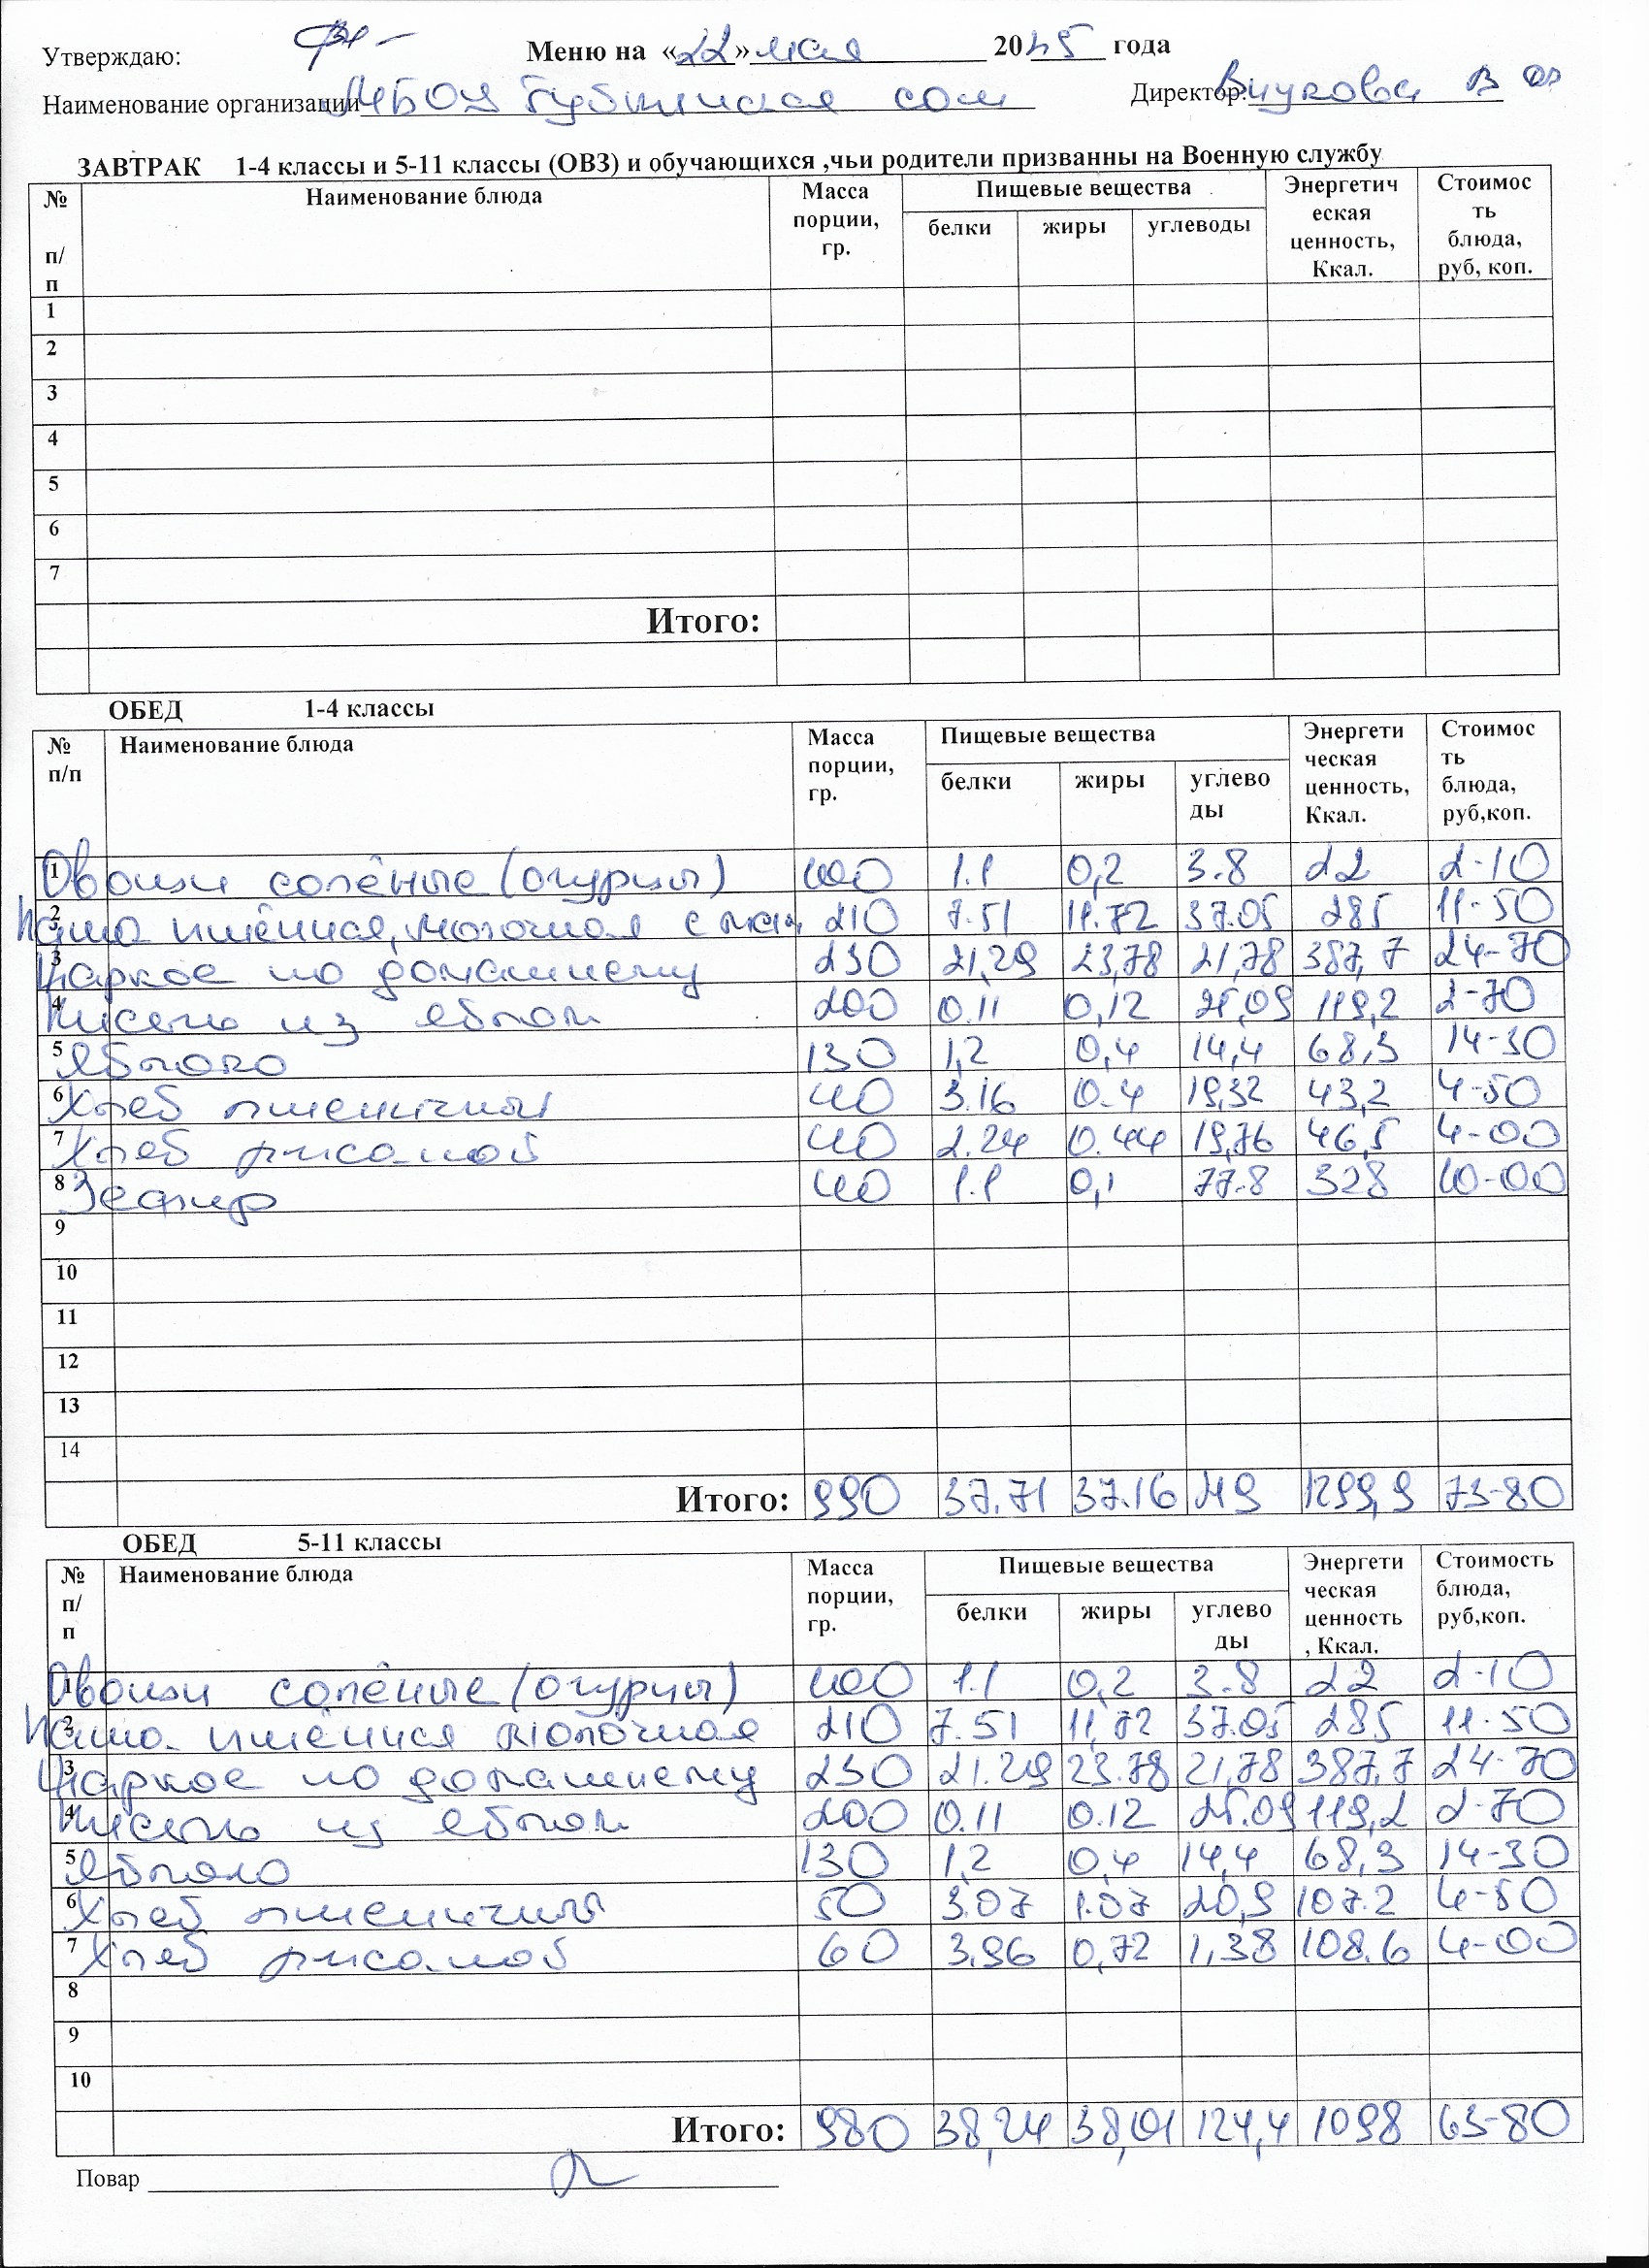 Утверждаю: Меню на «22» мая 2025 года
Наименование организации МБОУ Губтинская сош Директор: Внукова В
ЗАВТРАК 1-4 классы и 5-11 классы (ОВЗ) и обучающихся ,чьи родители призванны на Военную службу
№ п/п Наименование блюда Масса порции, гр. Пищевые вещества белки жиры углеводы Энергетическая ценность, Ккал. Стоимость блюда, руб, коп.
1
2
3
4
5
6
7
Итого:
ОБЕД 1-4 классы
№ п/п Наименование блюда Масса порции, гр. Пищевые вещества белки жиры углеводы Энергетическая ценность, Ккал. Стоимость блюда, руб,коп.
1 Овощи солёные (огурцы) 100 1.1 0,2 3.8 22 2-10
2 Каша пшённая, молочная с мал 210 7.51 11.72 37.05 285 11-50
3 Жаркое по домашнему 230 21,29 23,78 21,78 387,7 24-70
4 Кисель из яблок 200 0.11 0,12 25,09 119,2 2-70
5 Яблоко 130 1,2 0,4 14,4 68,3 14-30
6 Хлеб пшеничный 40 3.16 0.4 19,32 43,2 4-50
7 Хлеб ржаной 40 2.24 0.44 19,76 46,5 4-00
8 Зефир 40 1.1 0,1 77.8 328 10-00
9
10
11
12
13
14
Итого: 990 37.71 37.16 219 1299,9 73-80
ОБЕД 5-11 классы
№ п/п Наименование блюда Масса порции, гр. Пищевые вещества белки жиры углеводы Энергетическая ценность, Ккал. Стоимость блюда, руб,коп.
1 Овощи солёные (огурцы) 100 1.1 0,2 3.8 22 2-10
2 Каша пшённая молочная 210 7.51 11,72 37.05 285 11-50
3 Жаркое по домашнему 230 21.29 23.78 21,78 387,7 24-70
4 Кисель из яблок 200 0.11 0.12 25.09 119,2 2-70
5 Яблоко 130 1,2 0,4 14,4 68,3 14-30
6 Хлеб пшеничный 50 3.07 1.07 20,9 107.2 4-50
7 Хлеб ржаной 60 3.96 0,72 1,38 108.6 4-00
8
9
10
Итого: 980 38,24 38,01 124,4 1098 63-80
Повар